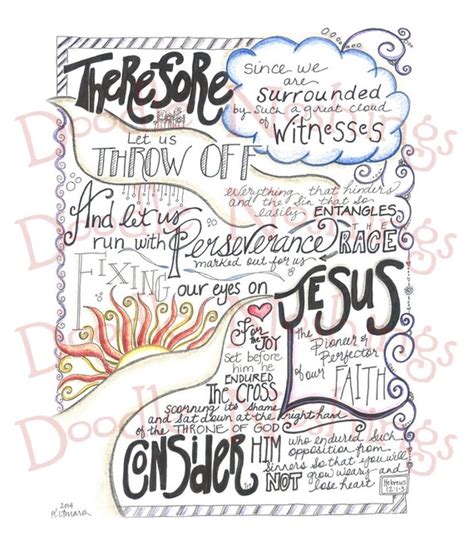 THEREFORE
since we
are
SURROUNDED
by such a great cloud
of
WITNESSES
Let us
THROW OFF
everything that hinders
and the sin that so
easily ENTANGLES
And let us
run with Perseverance
THE RACE
marked out for us
FIXING
our eyes on
JESUS
the
Pioneer &
Perfector
of our FAITH
For the
JOY
set before
him he
ENDURED
THE CROSS
scorning its shame
and sat down at the right hand
of the THRONE OF GOD
CONSIDER HIM
who endured such
opposition from
sinners so that you will
NOT grow weary and
lose heart
Hebrews
12:1-3
2014